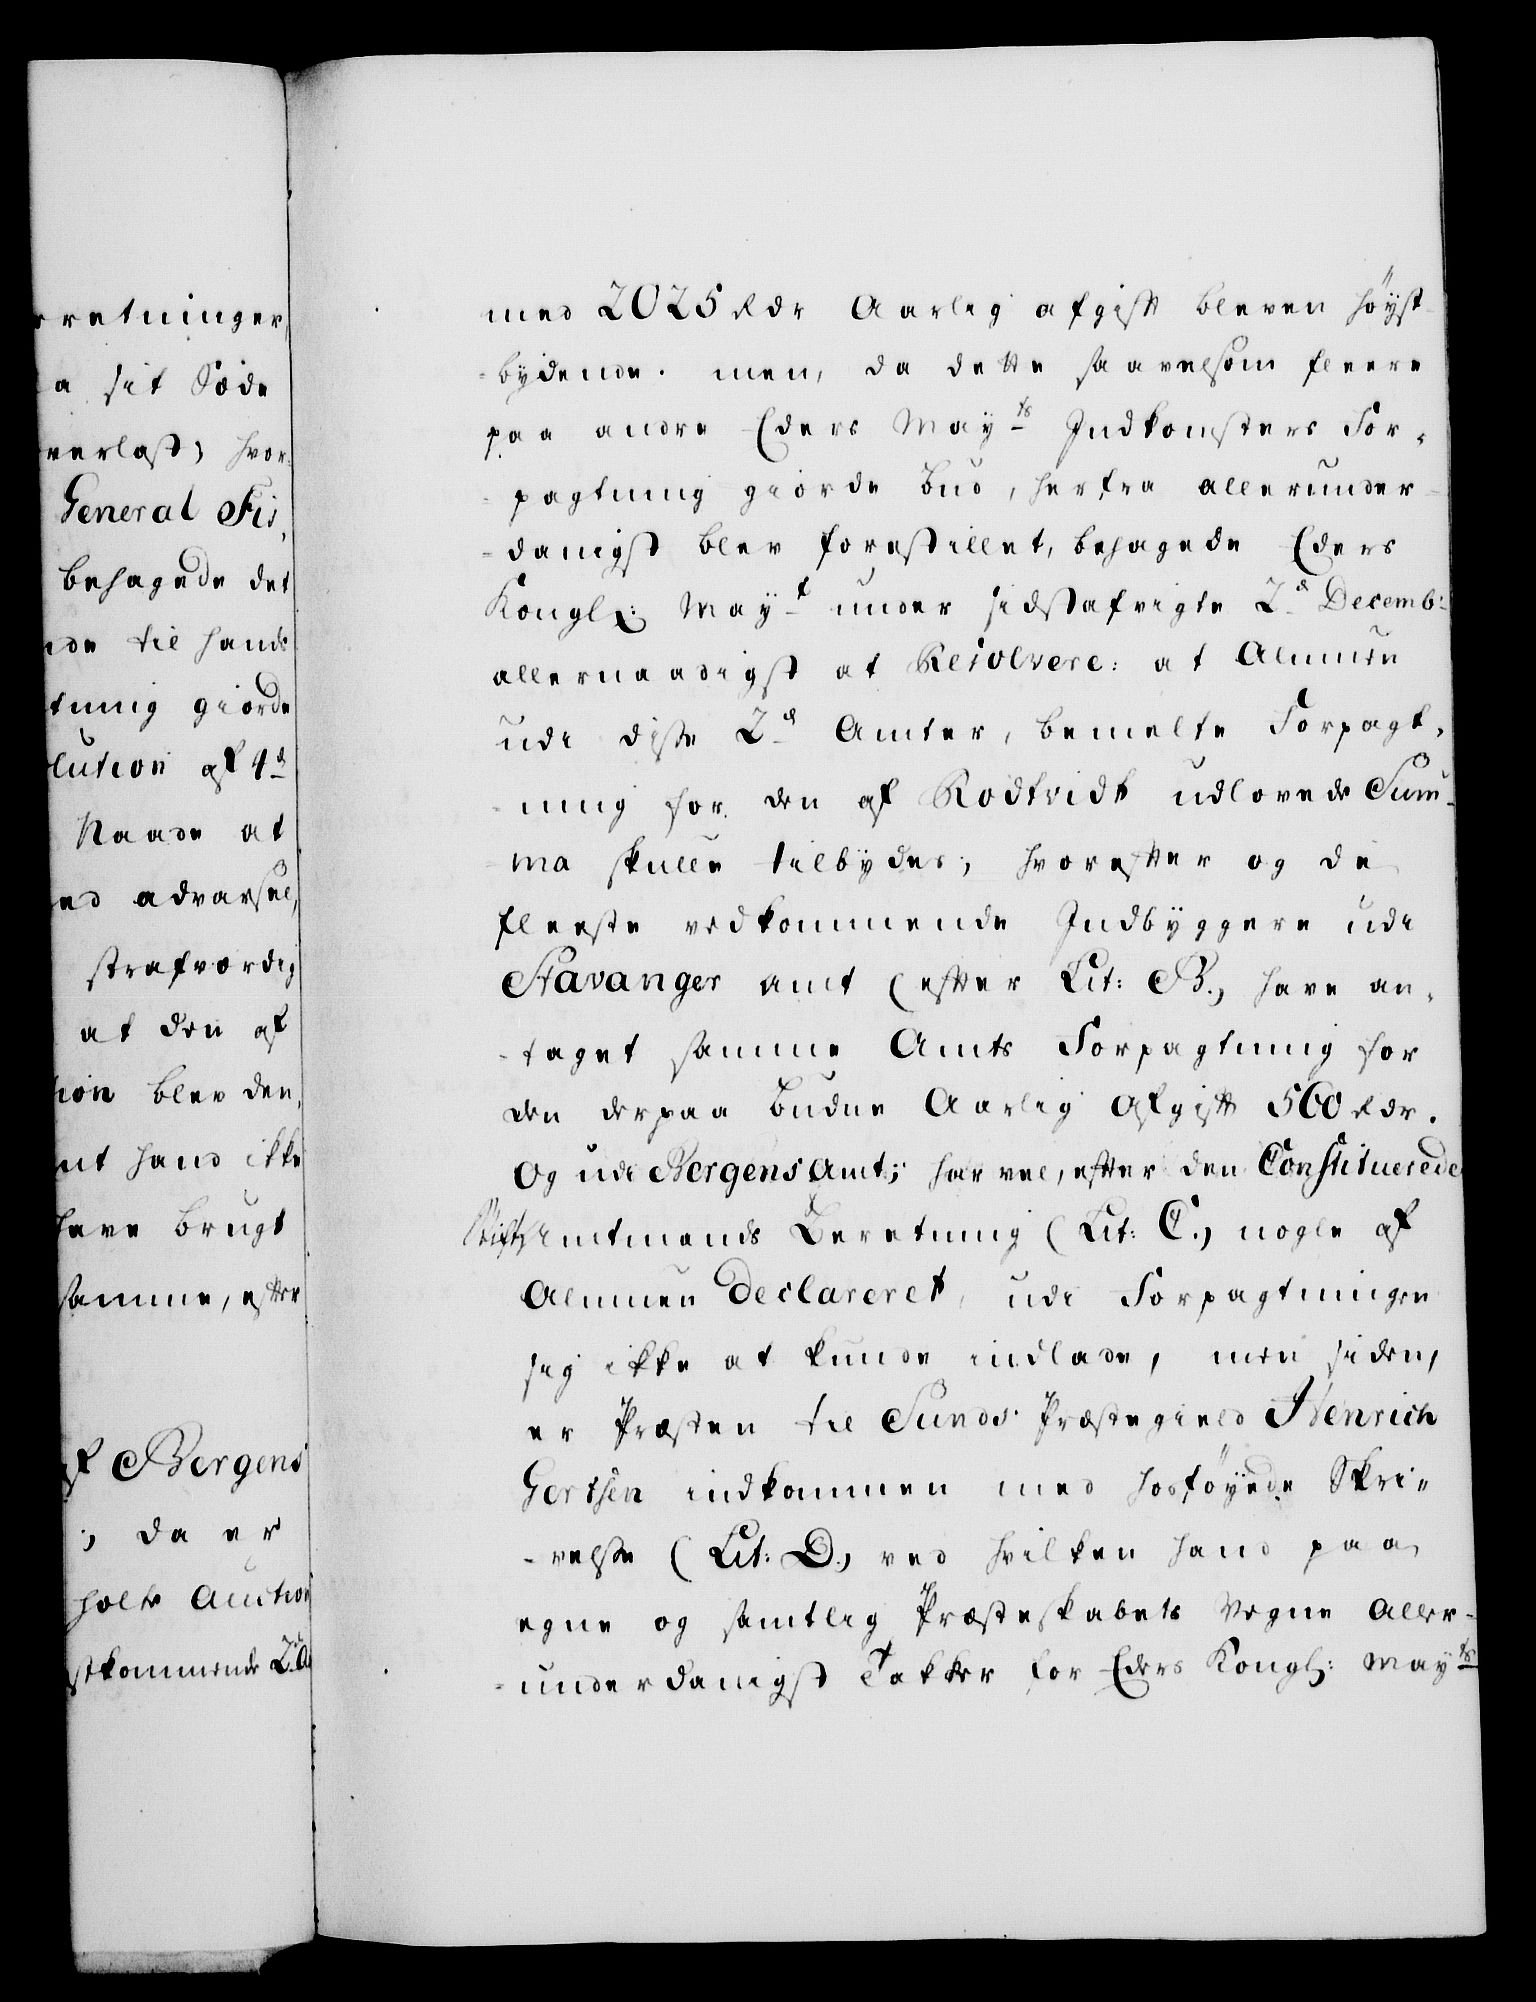 rretninger,
a sit Sæde
verlast) hvor-
General Fis,
behagede det
nde til hands
tning giorde
lution af 4de
Naade at
ed advarsel,
strafværdig
at den af
tion blev den,
nt hand ikke
have brugt
samme, efter
af Bergens
; da er
holte Auction
stkommende 2de A
med 2025 Rdr Aarlig afgift bleven høyst-
-bydende. men, da dette saavelsom fleere
paa andre Eders Mayts Indkomsters For-
-pagtning giorde bud, herfra allerunder-
-danigst blev forestillet, behagede Eders
Kongl: Mayt under sidstafvigte 2d Decemb:
allernaadigst at Resolvere: at Almuen
udi disse 2de Amter, bemelte Forpagt-
-ning for den af Rodtvidt udlovede Sum-
-ma skulle tilbydes; hvorefter og de
fleeste vedkommende Indbyggere udi
Stavanger amt (efter Lit: B.) have an-
-taget samme Amts Forpagtning for
den derpaa budne Aarlig Afgift 560 Rdr.
Og udi Bergens Amt; har vel, efter den Constituerede
Stifts Amtmands Beretning (Lit: C.) nogle af
Almuen Declareret, udi Forpagtningen
sig ikke at kunde indlade, men siden,
er Præsten til Sunds Præstegield Henrich
Gertsen indkommen med hosføyede Skri-
-velse (Lit: D.) ved hvilken hand paa
egne og samtlig Præsteskabets Vegne Aller-
-underdanigst Takker for Eders Kongl: Mayts